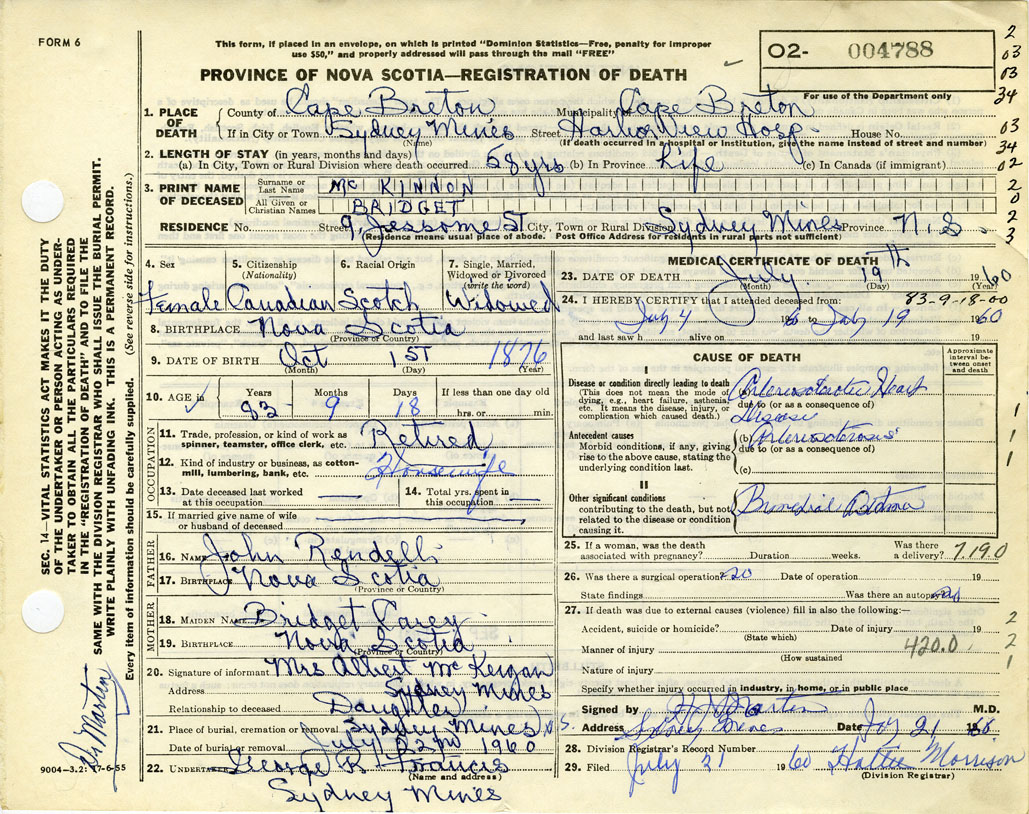 FORM 6
This form, if placed in an envelope, on which is printed "Dominion Statistics—Free, penalty for improper
use $50," and properly addressed will pass through the mail "FREE"
PROVINCE OF NOVA SCOTIA—REGISTRATION OF DEATH
O2- 004788
For use of the Department only
2
03
03
34
03
34
02
2
0
2
3
1. PLACE OF DEATH
County of Cape Breton Municipality Cape Breton
If in City or Town Sydney Mines Street Harbor View Hosp. House No.
(Name) (If death occurred in a hospital or Institution, give the name instead of street and number)
2. LENGTH OF STAY (in years, months and days)
(a) In City, Town or Rural Division where death occurred 68 yrs (b) in Province Life (c) in Canada (if immigrant)
3. PRINT NAME OF DECEASED
Surname or Last Name Mc KINNON
All Given or Christian Names BRIDGET
RESIDENCE No. Street 9, Jessome St City, Town or Rural Division Sydney Mines Province N.S.
(Residence means usual place of abode. Post Office Address for residents in rural parts not sufficient)
4. Sex
Female
5. Citizenship
(Nationality)
Canadian
6. Racial Origin
Scotch
7. Single, Married,
Widowed or Divorced
(write the word)
Widowed
8. BIRTHPLACE Nova Scotia
(Province or Country)
9. DATE OF BIRTH Oct 1ST 1876
(Month) (Day) (Year)
10. AGE in
Years Months Days If less than one day old
83 - 9 18 hrs. or min.
OCCUPATION
11. Trade, profession, or kind of work as
spinner, teamster, office clerk, etc. Retired
12. Kind of industry or business, as cotton-
mill, lumbering, bank, etc. Housewife
13. Date deceased last worked
at this occupation
14. Total yrs. spent in
this occupation
15. If married give name of wife
or husband of deceased
FATHER
16. NAME John Rendell
17. BIRTHPLACE Nova Scotia
(Province or Country)
MOTHER
18. MAIDEN NAME Bridget Carey
19. BIRTHPLACE Nova Scotia
(Province or Country)
20. Signature of informant Mrs Albert McKeigan
Address Sydney Mines
Relationship to deceased Daughter
21. Place of burial, cremation or removal Sydney Mines N.S.
Date of burial or removal July 22nd 1960
22. UNDERTAKER George R. Francis
(Name and address)
Sydney Mines
9004-3.2: 17-6-55
MEDICAL CERTIFICATE OF DEATH
23. DATE OF DEATH July 19th 1960
(Month) (Day) (Year)
24. I HEREBY CERTIFY that I attended deceased from: 83-9-18-00
July 4 1960 to July 19 1960
and last saw h alive on 19
CAUSE OF DEATH
Approximate interval between onset and death
I
Disease or condition directly leading to death
(This does not mean the mode of
dying; e.g., heart failure, asthenia,
etc. It means the disease, injury, or
complication which caused death.)
Heart
due to (or as a consequence of)
Disease
Antecedent causes
Morbid conditions, if any, giving
rise to the above cause, stating the
underlying condition last.
(b)
due to (or as a consequence of)
(c)
1
1
1
II
Other significant conditions
contributing to the death, but not
related to the disease or condition
causing it.
25. If a woman, was the death
associated with pregnancy? Duration weeks. Was there
a delivery? 7.19.0
26. Was there a surgical operation? no Date of operation 19
State findings Was there an autopsy? no
27. If death was due to external causes (violence) fill in also the following:—
Accident, suicide or homicide? Date of injury 19 2
(State which)
Manner of injury 420.0 2
(How sustained
Nature of injury 1
Specify whether injury occurred in industry, in home, or in public place
Signed by Martin M.D.
Address Sydney Mines Date July 21 1960
28. Division Registrar's Record Number
29. Filed July 21 1960 Hattie Morrison
(Division Registrar)
SEC. 14—VITAL STATISTICS ACT MAKES IT THE DUTY
OF THE UNDERTAKER OR PERSON ACTING AS UNDER-
TAKER TO OBTAIN ALL THE PARTICULARS REQUIRED
IN THE "REGISTRATION OF DEATH" AND TO FILE THE
SAME WITH THE DIVISION REGISTRAR WHO SHALL ISSUE THE BURIAL PERMIT.
WRITE PLAINLY WITH UNFADING INK. THIS IS A PERMANENT RECORD.
Every item of information should be carefully supplied. (See reverse side for instructions.)
Dr Martin